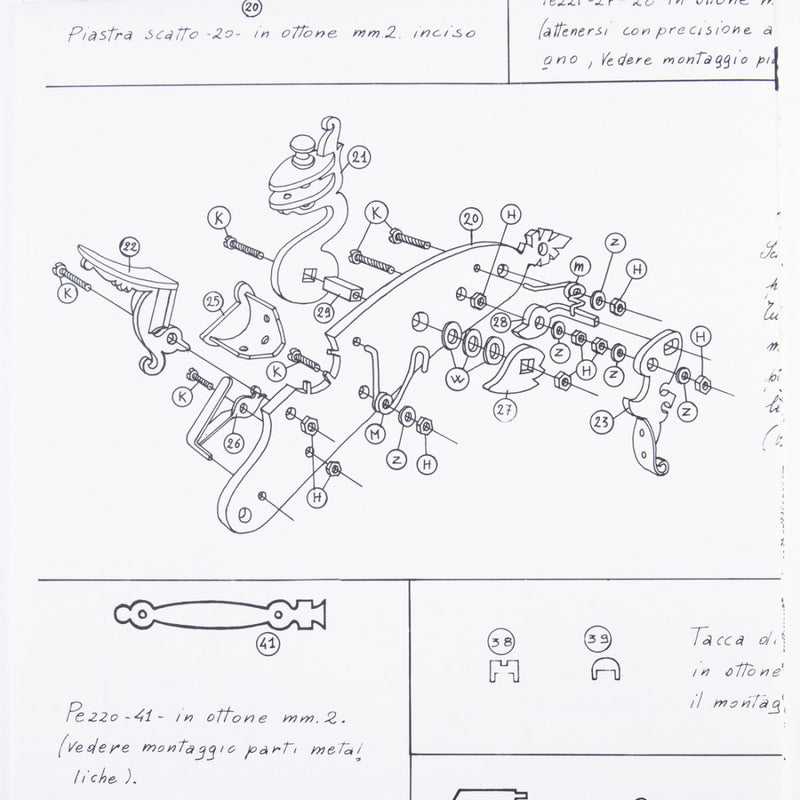 20
Piastra scatto -20- in ottone mm.2. inciso
in ottone
(attenersi con precisione a
ano, Vedere montaggio
21
K
K
20
H
Z
m
H
22
K
25
29
28
K
Z
H
Z
H
W
27
23
Z
K
26
M
Z
H
H
41
Pezzo -41- in ottone mm.2.
(Vedere montaggio parti metal
liche).
38
39
Tacca di
in ottone
il montag